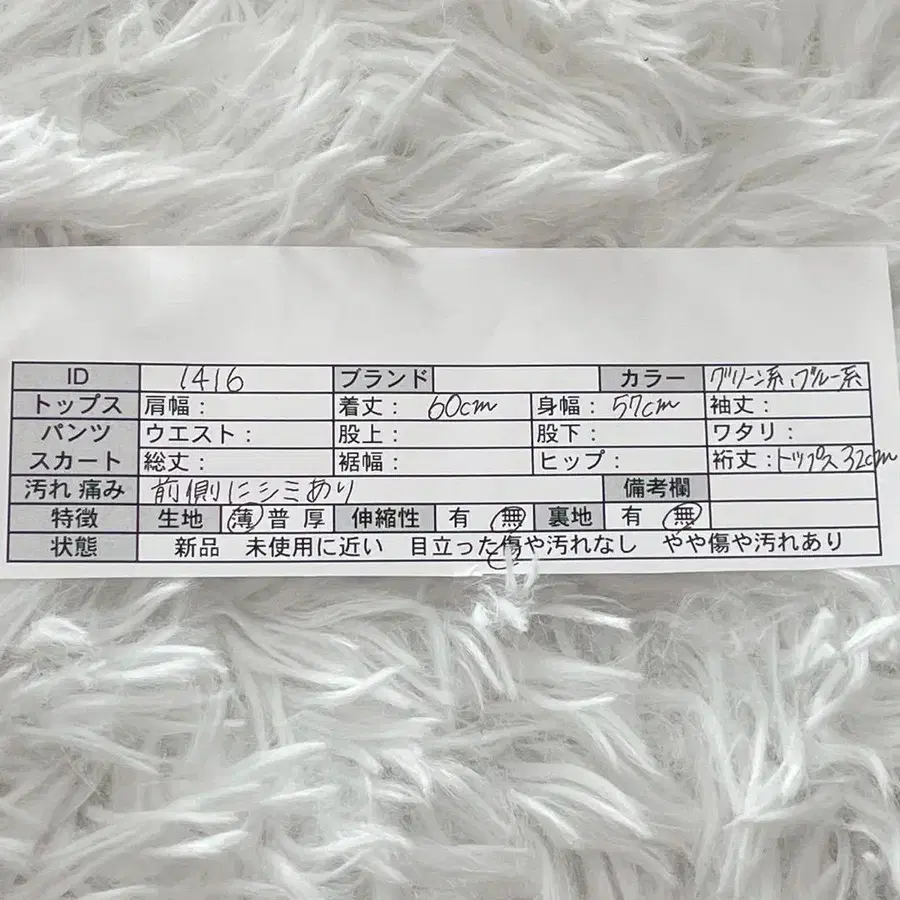 ID 1416 ブランド カラー グリーン系、ブルー系
トップス 肩幅： 着丈： 60cm 身幅： 57cm 袖丈：
パンツ ウエスト： 股上： 股下： ワタリ：
スカート 総丈： 裾幅： ヒップ： 裄丈：トップス 32cm
汚れ 痛み 前側にシミあり 備考欄
特徴 生地 薄 普 厚 伸縮性 有 無 裏地 有 無
状態 新品 未使用に近い 目立った傷や汚れなし やや傷や汚れあり